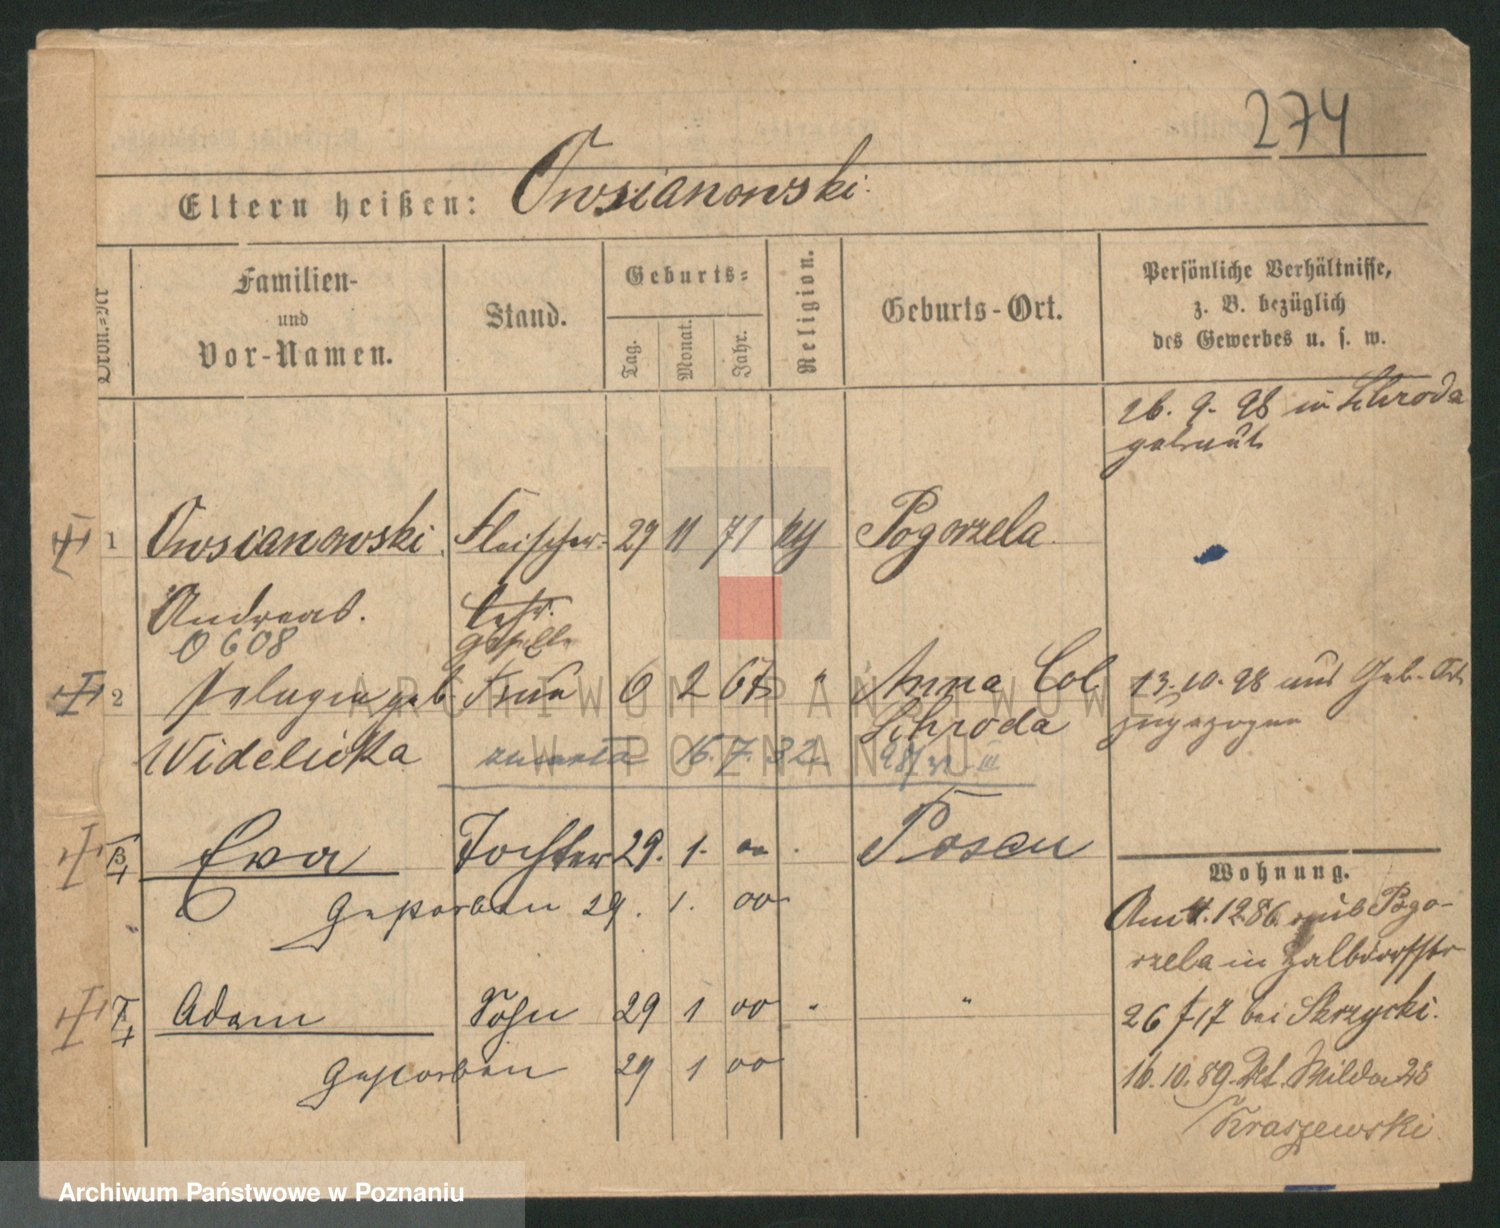 274
Eltern heißen: Owsianowski.
Ordn.-Nr
Familien-
und
Vor-Namen.
Stand.
Geburts-
Tag.
Monat.
Jahr.
Religion.
Geburts-Ort.
Persönliche Verhältnisse,
z. B. bezüglich
des Gewerbes u. s. w.
26. 9. 98 in Schroda
getraut
1 Owsianowski Fleischer- 27 11 71 Pogorzela
Andreas.
0608 geselle
2 Pelagia geb Frau 6 2 67 " Anna Col
Schroda
13.10.98 aus Geb. Ort
zugezogen
Widelicka zmarła 16.7.32
ARCHIWUM PAŃSTWOWE
W POZNANIU
3 Eva Tochter 29. 1. 00 Posen
Gestorben 29. 1. 00
Adam Sohn 29 1 00 " "
Gestorben 29 1 00
Wohnung.
Pogo-
rzela in Halbdorfstr
26 bei Skrzycki.
16.10.89. Wilda 28
Kraszewski
Archiwum Państwowe w Poznaniu